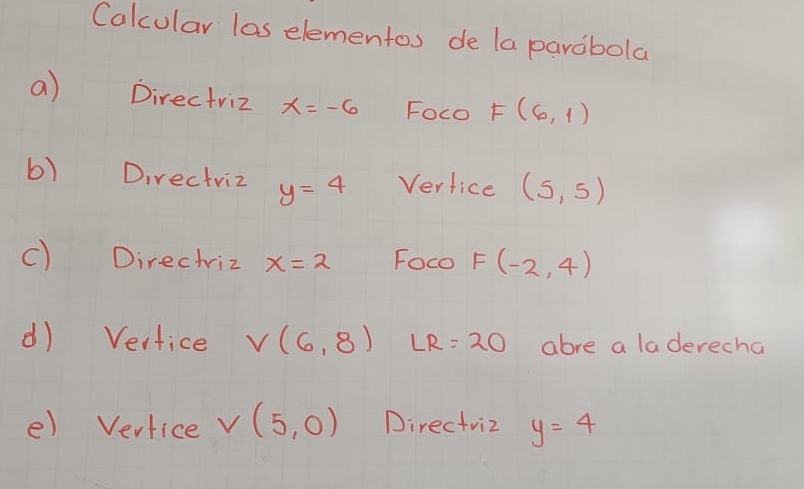 Calcular las elementos de la parábola
a) Directriz x=-6 Foco F(6,1)
b) Directriz y=4 Vertice (5,5)
c) Directriz x=2 Foco F(-2,4)
d) Vertice V(6,8) LR=20 abre a la derecha
e) Vertice V(5,0) Directriz y=4